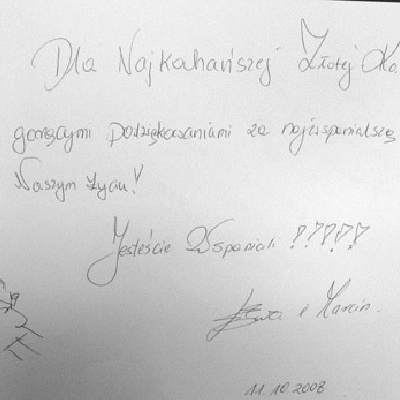 Dla Najkochańszej Złotej
gorącymi podziękowaniami za najwspanialszą
Naszym życiu!
Jesteście Wspaniali !!!!!
Ewa i Marcin.
11.10.2008